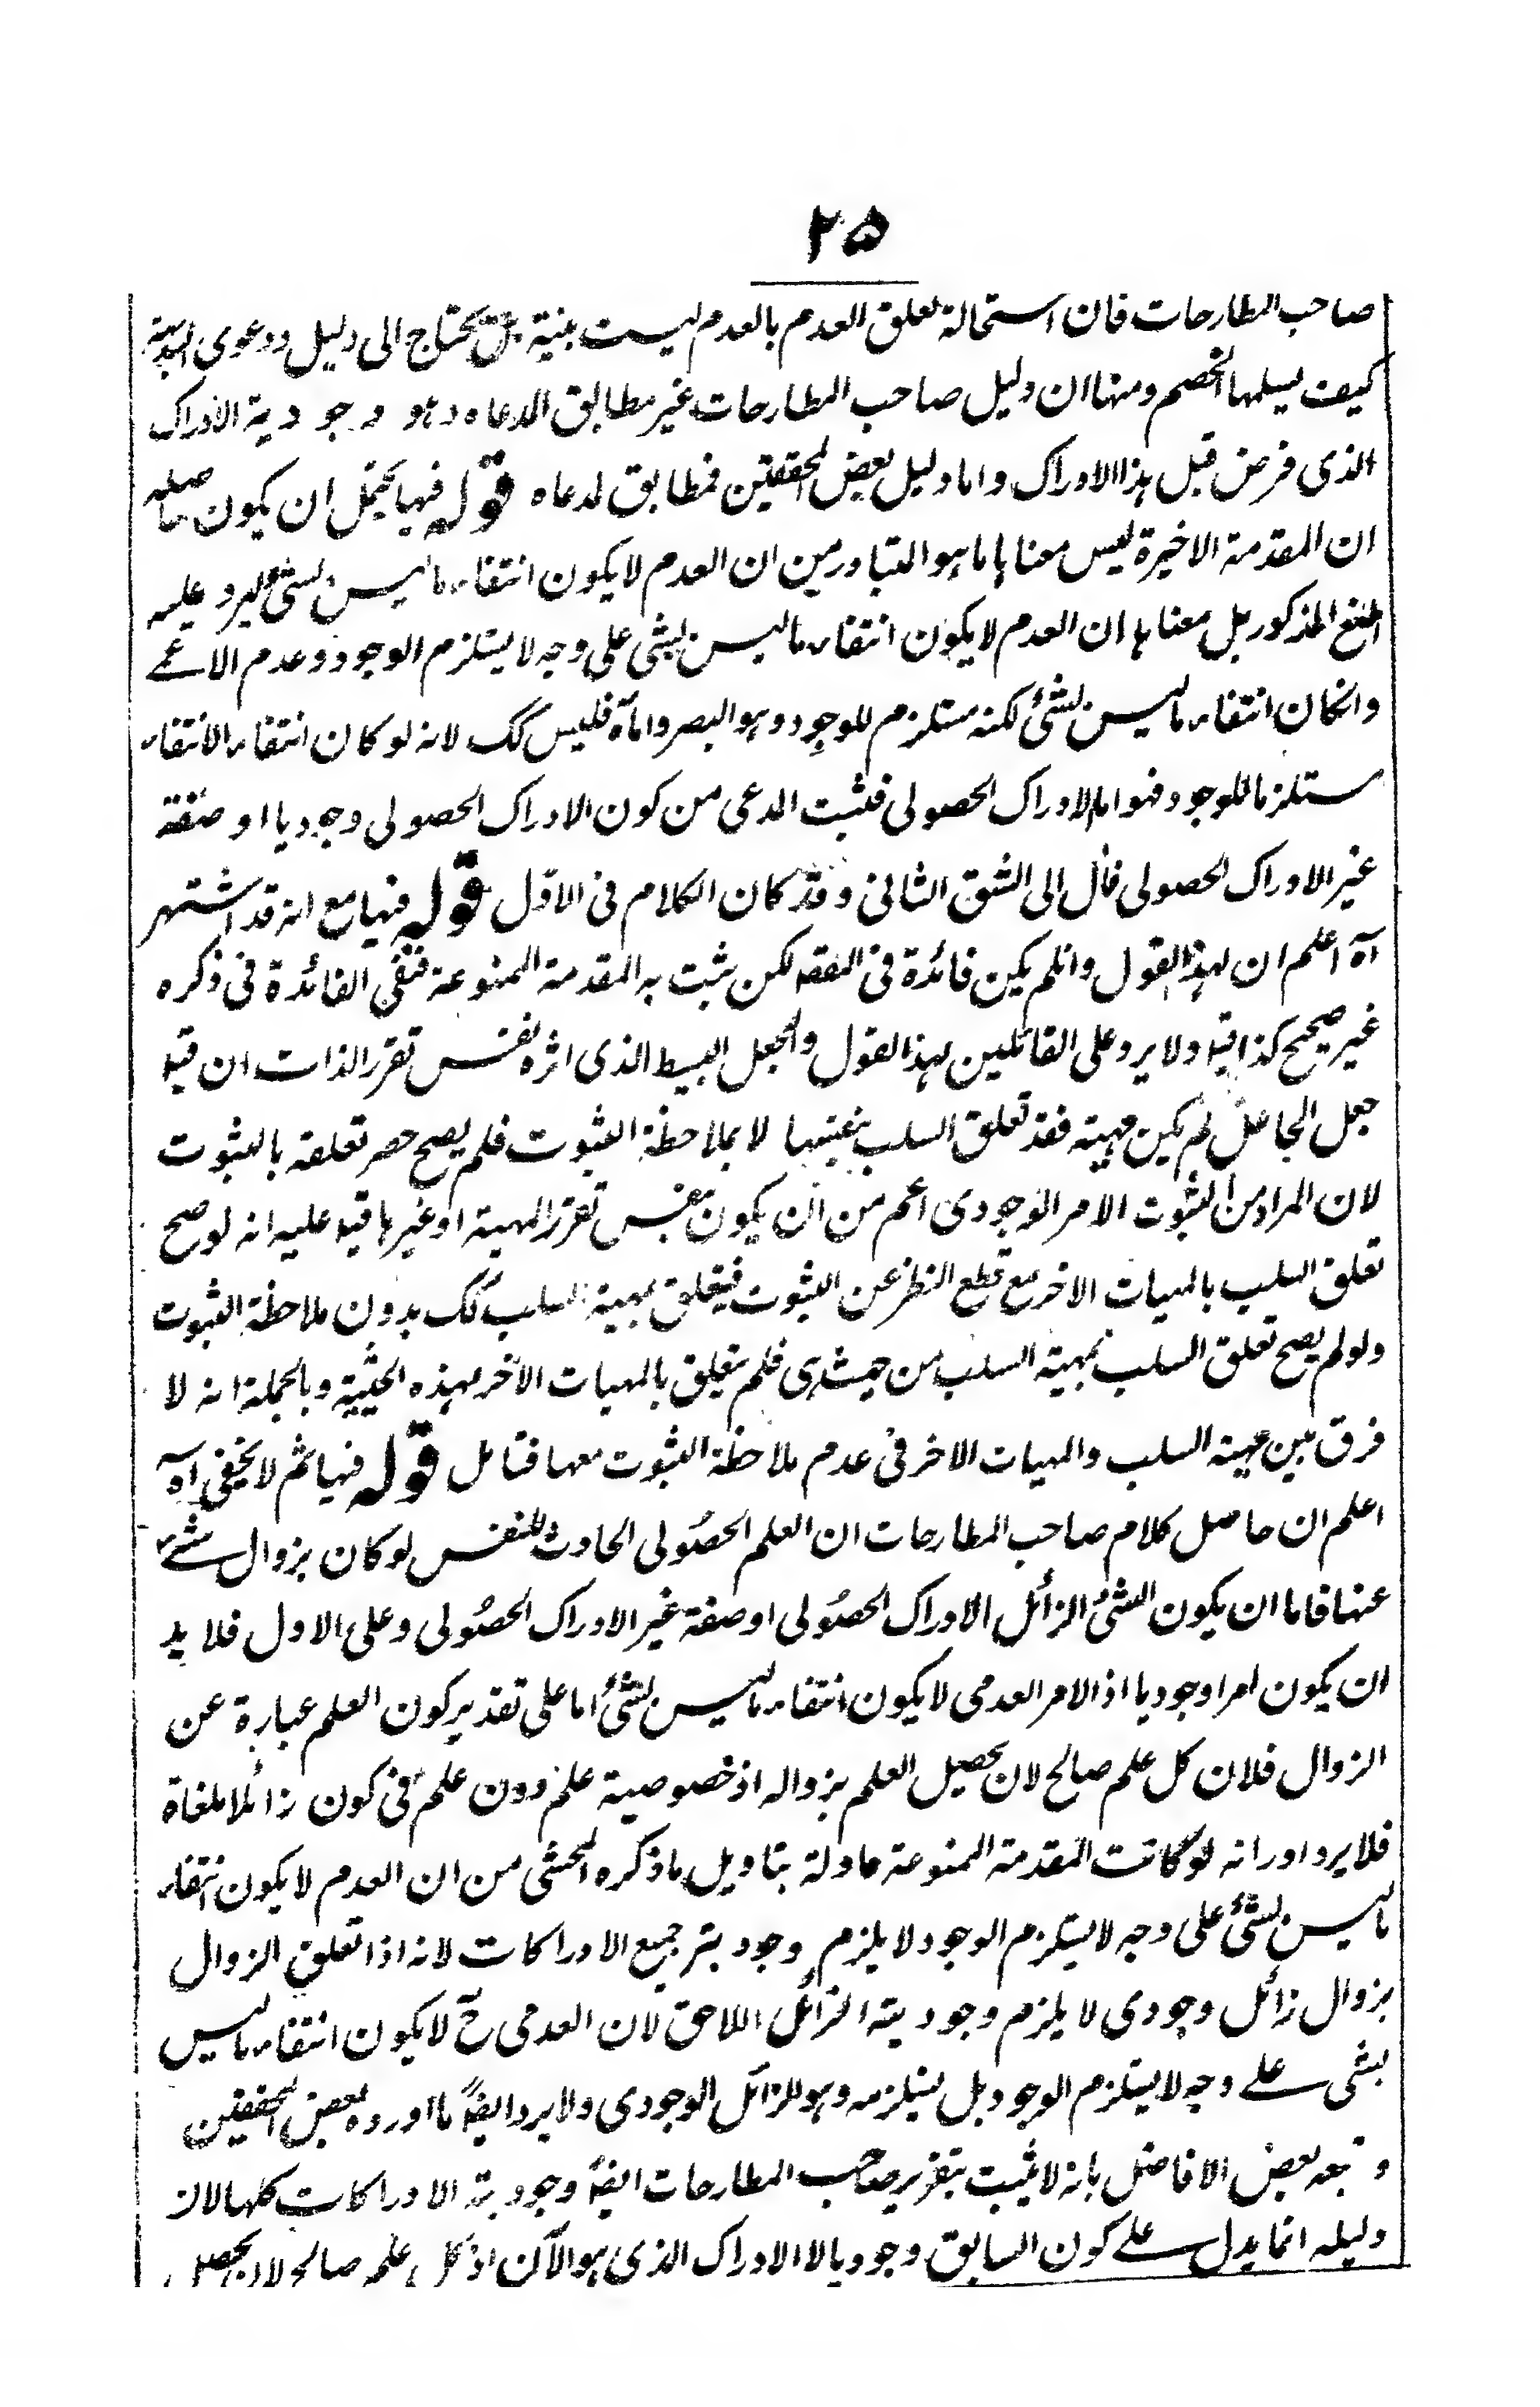 ٢٥
صاحب المطارحات فان استحالة تعلق العدم بالعدم ليست بنية بل يحتاج الى دليل ودعوى البداهة
كيف يسلمها الخصم ومنها ان دليل صاحب المطارحات غير مطابق للدعاه وهو وجودية الادراك
الذى فرض قبل هذا الادراك واما دليل بعض المحققين فمطابق لدعاه قوله فيها يحتمل ان يكون حاصله
ان المقدمة الاخيرة ليس معناها ما هو المتبادر من ان العدم لا يكون انتفاء ما ليس بشئ ليرد عليه
المنع المذكور بل معناها ان العدم لا يكون انتفاء ما ليس بشئ على وجه لا يستلزم الوجود وعدم الاعمے
وانكان انتفاء ما ليس بشئ لكنه مستلزم للوجود وهو البصر واما آه فليس كك لانه لو كان انتفاء الانتفاء
مستلزما للوجود فهو اما الادراك الحصولى فثبت المدعى من كون الادراك الحصولى وجوديا او صفة
غير الادراك الحصولى فمال الى الشق الثانى وقد كان الكلام فى الاول قوله فيها مع انه قد اشتهر
آه اعلم ان لهذا القول وانلم يكن فائدة فى النقض لكن يثبت به المقدمة الممنوعة فنفى الفائدة فى ذكره
غير صحيح كذا قيل ولا يرد على القائلين بهذا القول والجعل البسيط الذى اثره نفس تقرر الذات ان قبل
جعل الجاعل لم يكن مهية فقد تعلق السلب بنفسها لا بملاحظة الثبوت فلم يصح حصر تعلقه بالثبوت
لان المراد من الثبوت الامر الوجودى اعم من ان يكون نفس تقرر المهية او غيرها قيل عليه انه لو صح
تعلق السلب بالمهيات الاخر مع قطع النظر عن الثبوت فيتعلق بمهية السلب كك بدون ملاحظة الثبوت
ولو لم يصح تعلق السلب بمهية السلب من حيث هى فلم يتعلق بالمهيات الاخر بهذه الحيثية وبالجملة انه لا
فرق بين مهية السلب والمهيات الاخر فى عدم ملاحظة الثبوت معها فتامل قوله فيها ثم لا يخفى آه
اعلم ان حاصل كلام صاحب المطارحات ان العلم الحصولى الحادث للنفس لو كان بزوال شئ
عنها فاما ان يكون الشئ الزائل الادراك الحصولى او صفة غير الادراك الحصولى وعلى الاول فلا بد
ان يكون امرا وجوديا اذ الامر العدمى لا يكون انتفاء ما ليس بشئ اما على تقدير كون العلم عبارة عن
الزوال فلان كل علم صالح لان يحصل العلم بزواله اذ خصوصية علم دون علم فى كون زائلا ملغاة
فلا يرد اورانه لو كانت المقدمة الممنوعة ماولة بتاويل ما ذكره المحشى من ان العدم لا يكون انتفاء
ما ليس بشئ على وجه لا يستلزم الوجود لا يلزم وجودية جميع الادراكات لانه اذا تعلق الزوال
بزوال زائل وجودى لا يلزم وجودية الزائل اللاحق لان العدمى ح لا يكون انتفاء ما ليس
بشى على وجه لا يستلزم الوجود بل يستلزمه وهو للزائل الوجودى ولا يرد ايضا ما اورده بعض المحققين
وتبعه بعض الافاضل بانه لا يثبت بتقرير صاحب المطارحات ايضا وجودية الادراكات كلها لان
دليله انما يدل على كون السابق وجوديا لا الادراك الذى هو الآن اذ كل علم صالح لان يحصل